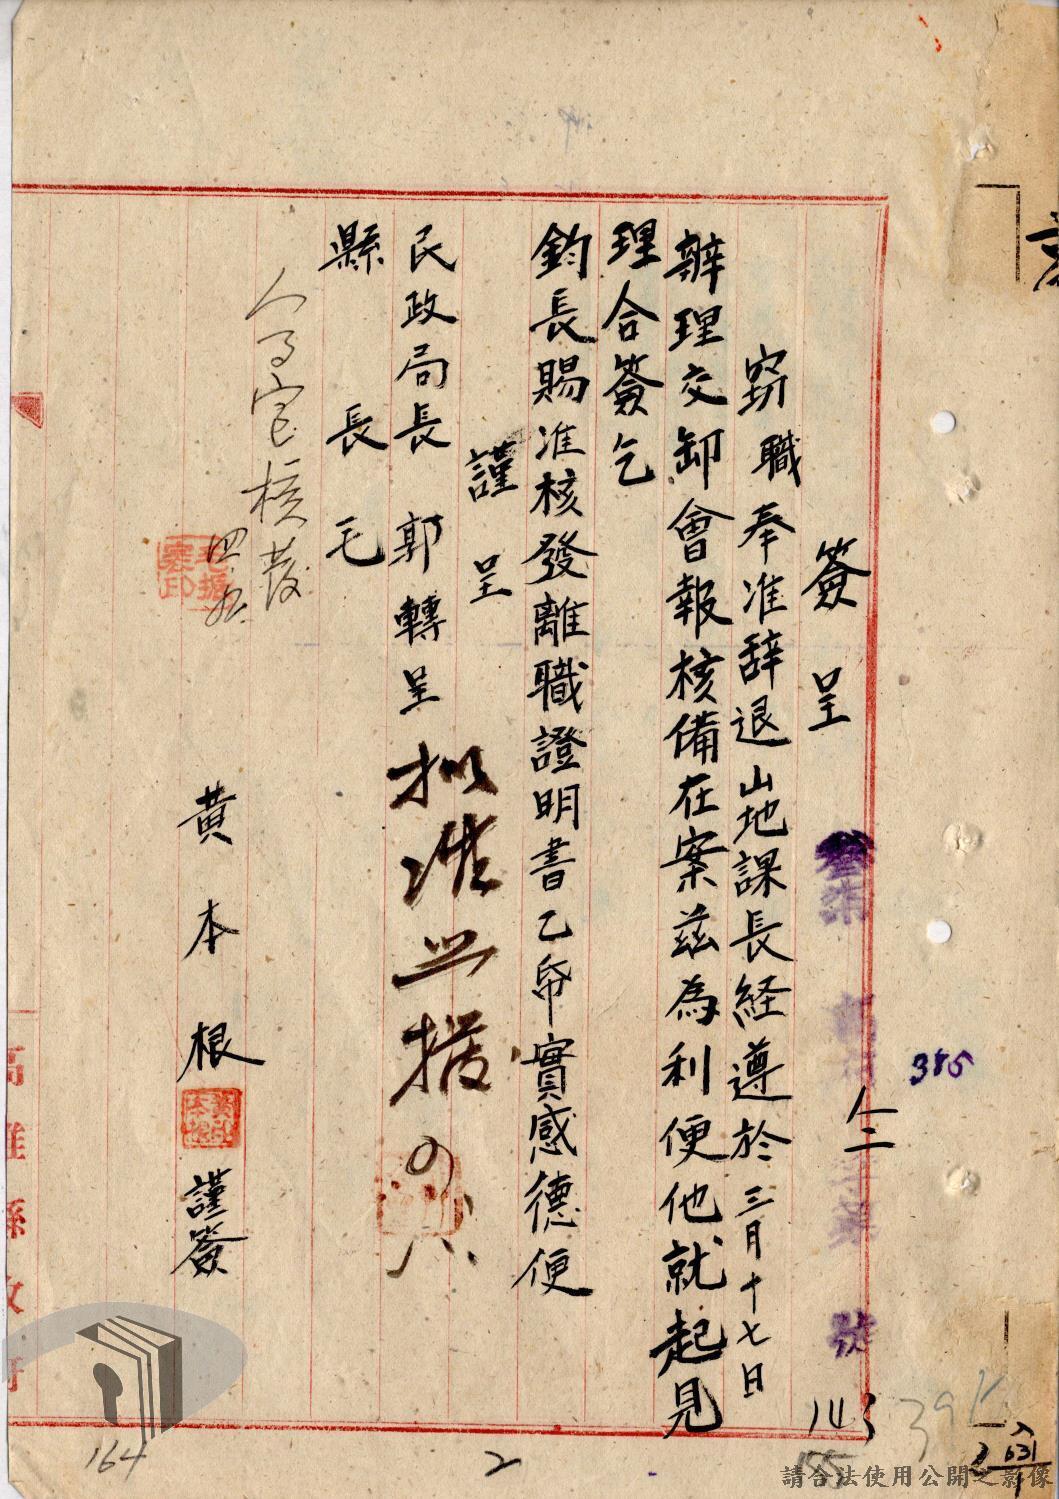 簽呈
竊職奉准辞退山地課長経遵於三月十七日
辦理交卸會報核備在案茲為利便他就起見
理合簽乞
鈞長賜准核發離職證明書乙帋實感德便
謹呈
民政局長郭轉呈
縣長毛
擬准照撥
核發
黃本根謹簽
號
385
143
155
2
164
631
高雄縣政府
請合法使用公開之影像